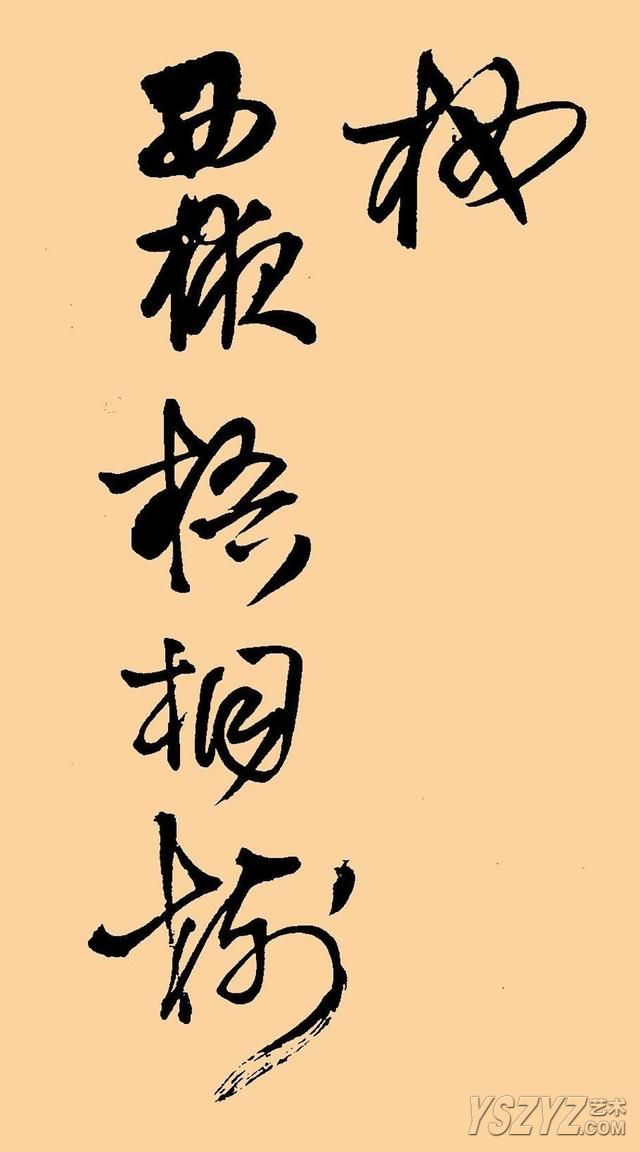 西掖梧桐树
YSZYZ艺术.COM